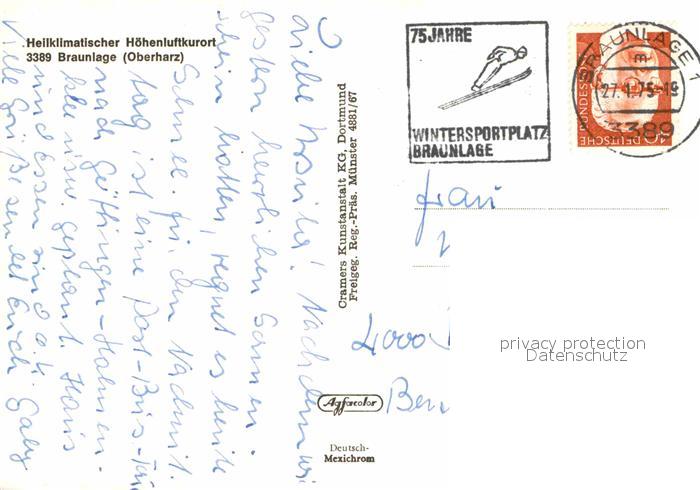 Heilklimatischer Höhenluftkurort
3389 Braunlage (Oberharz)
Nachdem wir
gestern herrlichen Sonnen-
schein hatten, regnet es heute
Schnee. Für den Nachmit-
tag ist eine Post-Bus-
nach Göttingen-Hahnen-
klee usw. geplant. Haus
und Essen sind o.k.
Viele Grüße sendet Euch Gaby
Cramers Kunstanstalt KG, Dortmund
Freigeg. Reg.-Präs. Münster 4881/67
Agfacolor
Deutsch-
Mexichrom
75 JAHRE
WINTERSPORTPLATZ
BRAUNLAGE
BRAUNLAGE 1
m
27.1.75-
3389
DEUTSCHE BUNDESPOST
40
Frau
4000
Ben
privacy protection
Datenschutz